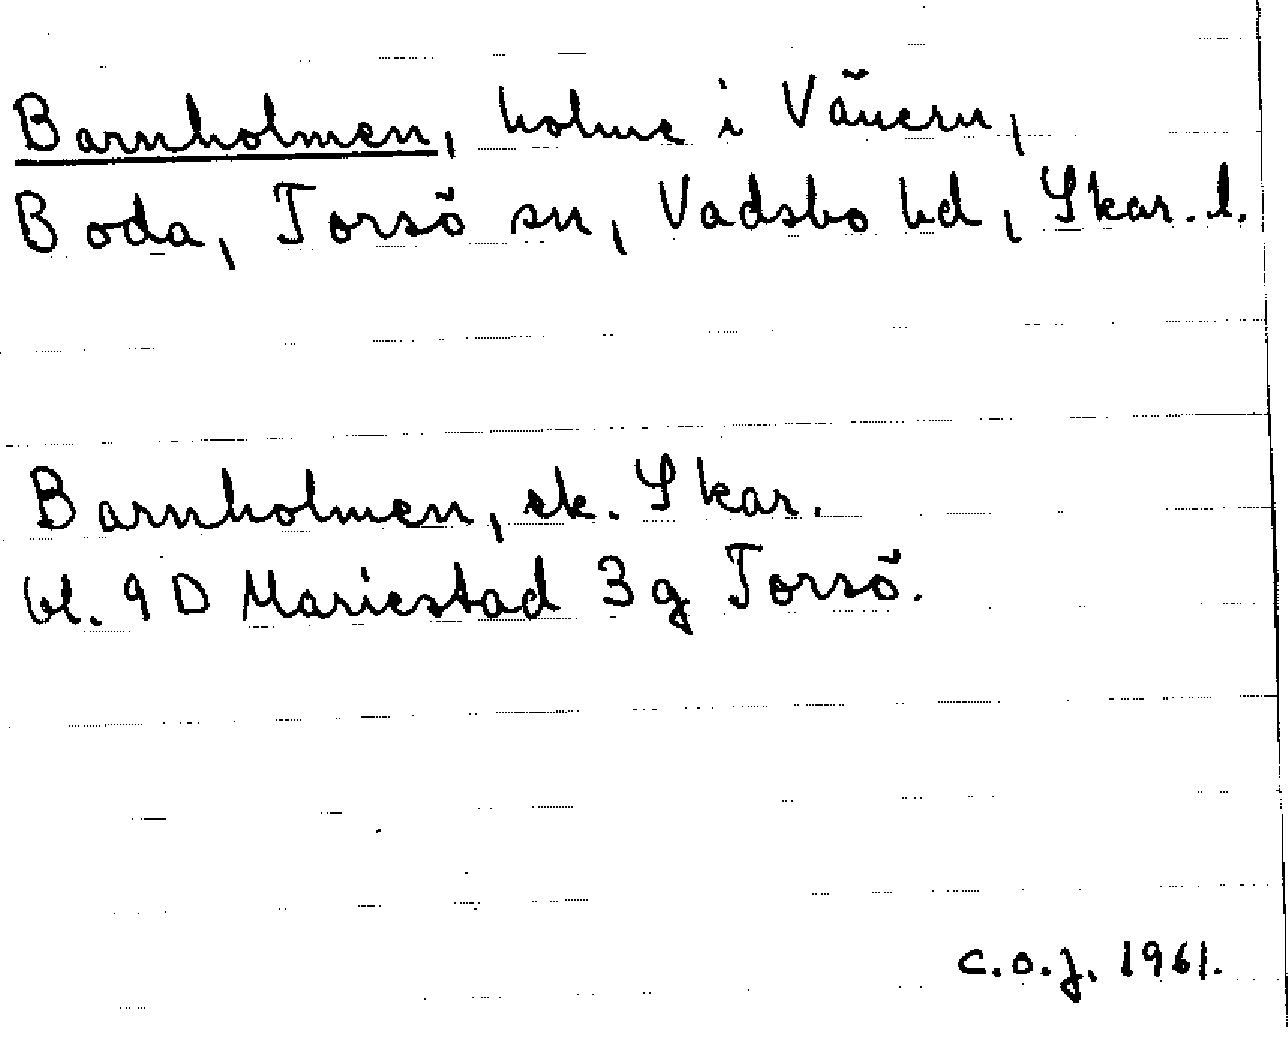 Barnholmen, holme i Vänern,
Boda, Torsö sn, Vadsbo hd, Skar. l.
Barnholmen, ek. Skar.
bl. 9 D Mariestad 3 g Torsö.
C.O.J. 1961.